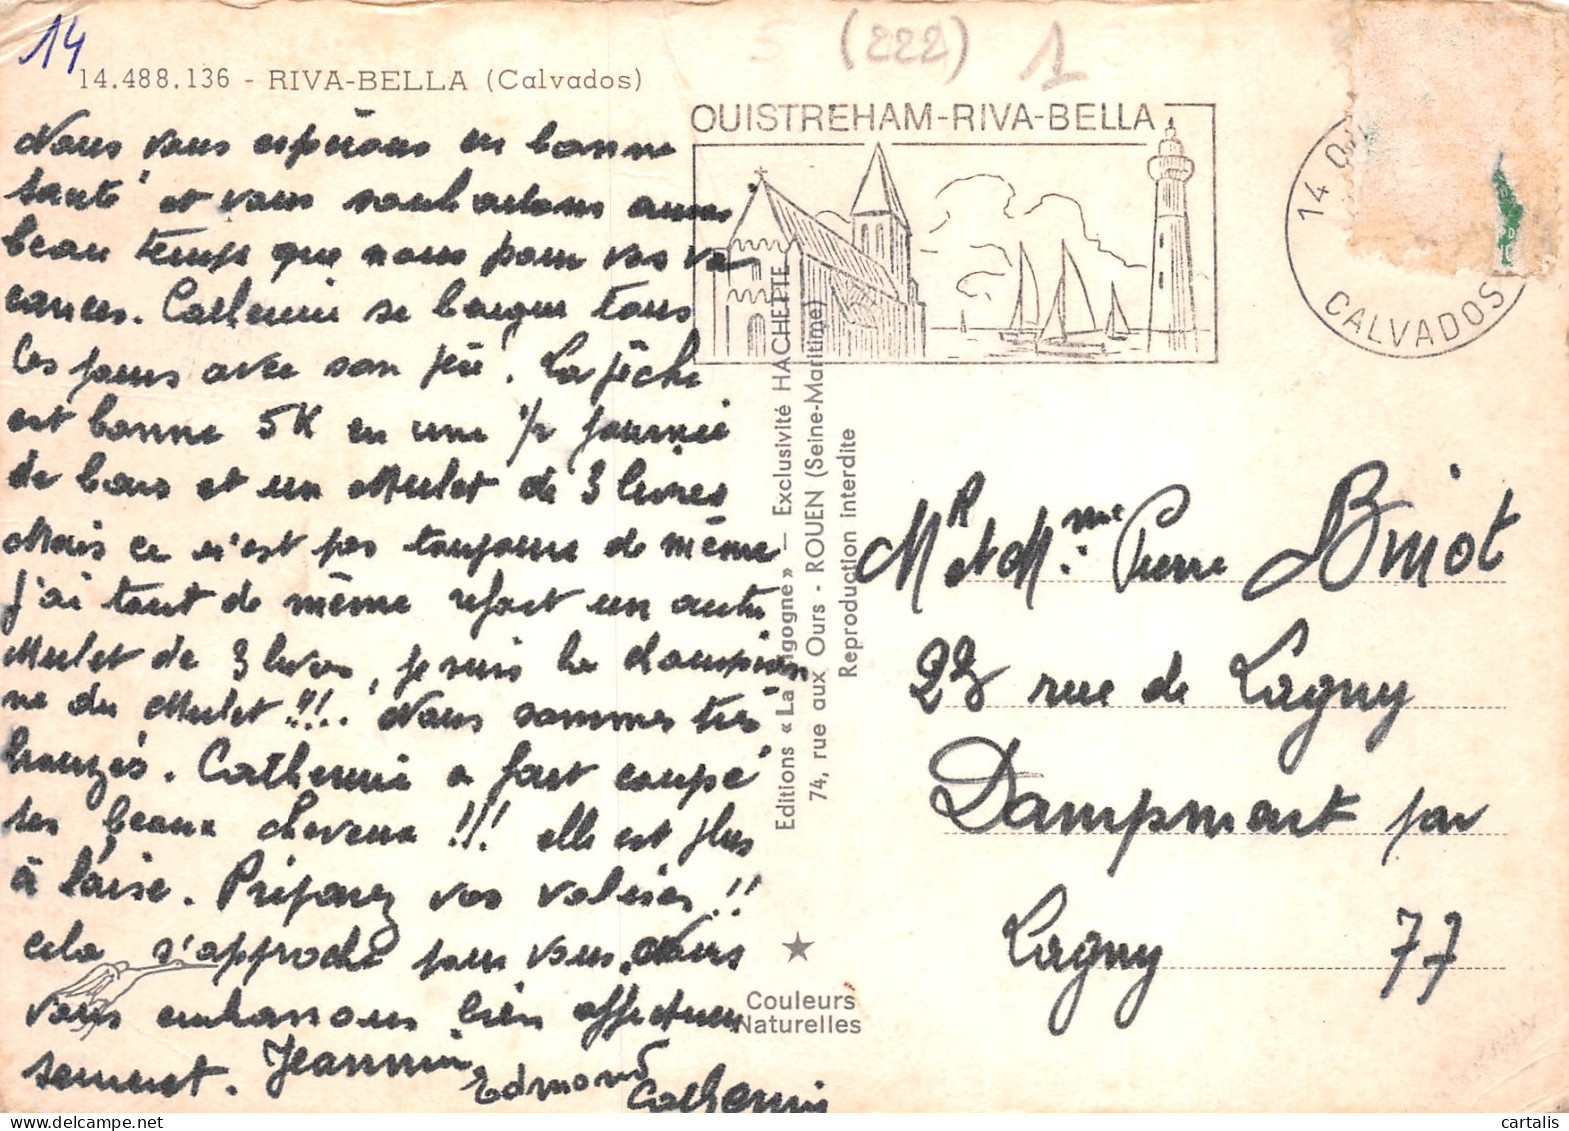 14
(222) 1
14.488.136 - RIVA-BELLA (Calvados)
Nous vous espérons en bonne
santé et vous souhaitons aussi
beau temps que nous pour vos va
cances. Catherine se baigne tous
les jours avec son père. La pêche
est bonne 5K en une 1/2 journée
de bars et un Mulet de 3 livres
Mais ce n'est pas toujours de même
j'ai tout de même refait un autre
Mulet de 3 livres, je suis la champion
ne du Mulet !!!.. Nous sommes très
bronzés. Catherine a fait coupé
ses beaux cheveux !!! elle est plus
à l'aise. Préparez vos valises !!
cela s'approche pour vous. Nous
vous embrassons bien affectueu
sement. Jeannine
Edmond
Catherine
OUISTREHAM-RIVA-BELLA
14
CALVADOS
Editions « La Cigogne » — Exclusivité HACHETTE
74, rue aux Ours - ROUEN (Seine-Maritime)
Reproduction interdite
Couleurs
Naturelles
MR et Mme Pierre Biniot
rue de Lagny
Dampmart par
Lagny 77
cartalis
delcampe.net